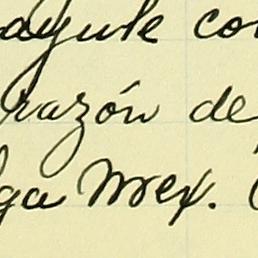 ayule co
razón de
ga Mex.